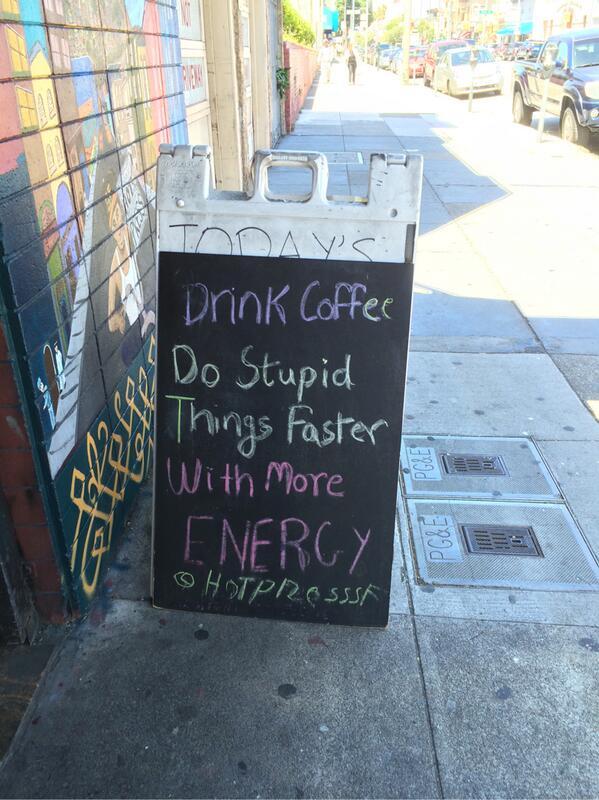 TODAY'S
Drink Coffee
Do Stupid
Things Faster
With More
ENERGY
@HOTPRESSSF
PG&E
PG&E